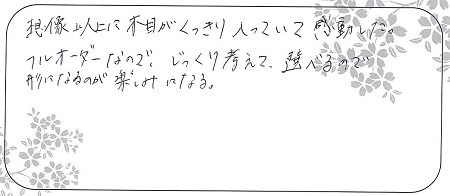 想像以上に木目がくっきり入っていて感動した。
フルオーダーなので、じっくり考えて、選べるので
形になるのが楽しみになる。